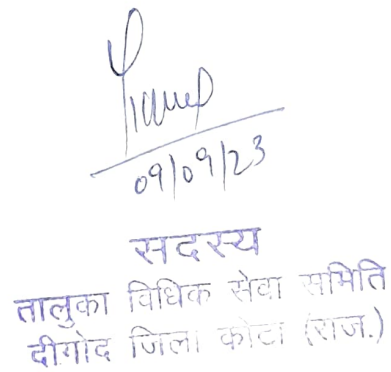 09/09/23
सदस्य
तालुका विधिक सेवा समिति
दीगोद जिला कोटा (राज.)